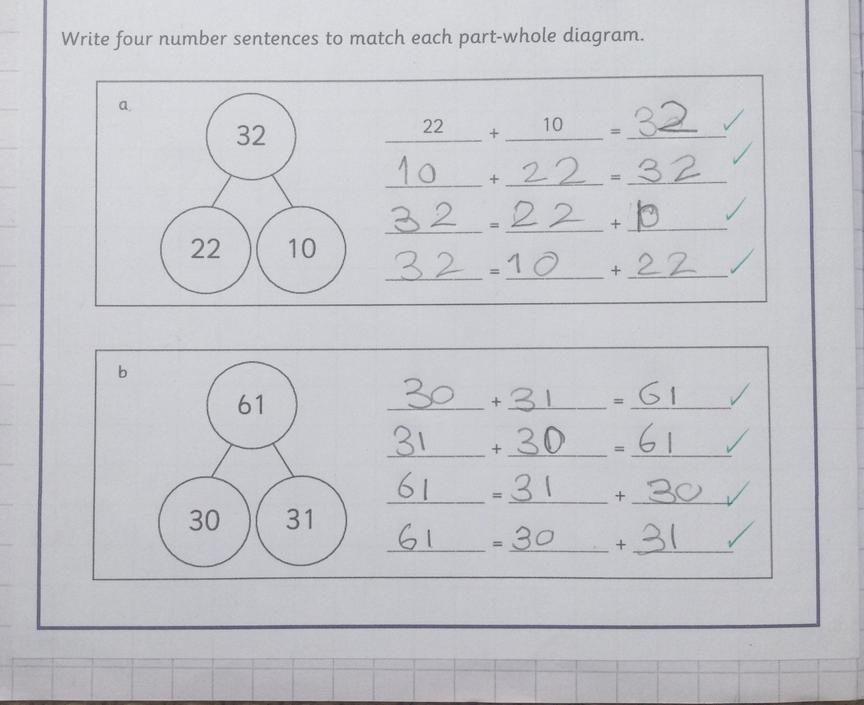 Write four number sentences to match each part-whole diagram.
a
32
22 10
22 + 10 = 32
10 + 22 = 32
32 = 22 + 10
32 = 10 + 22
b
61
30 31
30 + 31 = 61
31 + 30 = 61
61 = 31 + 30
61 = 30 + 31